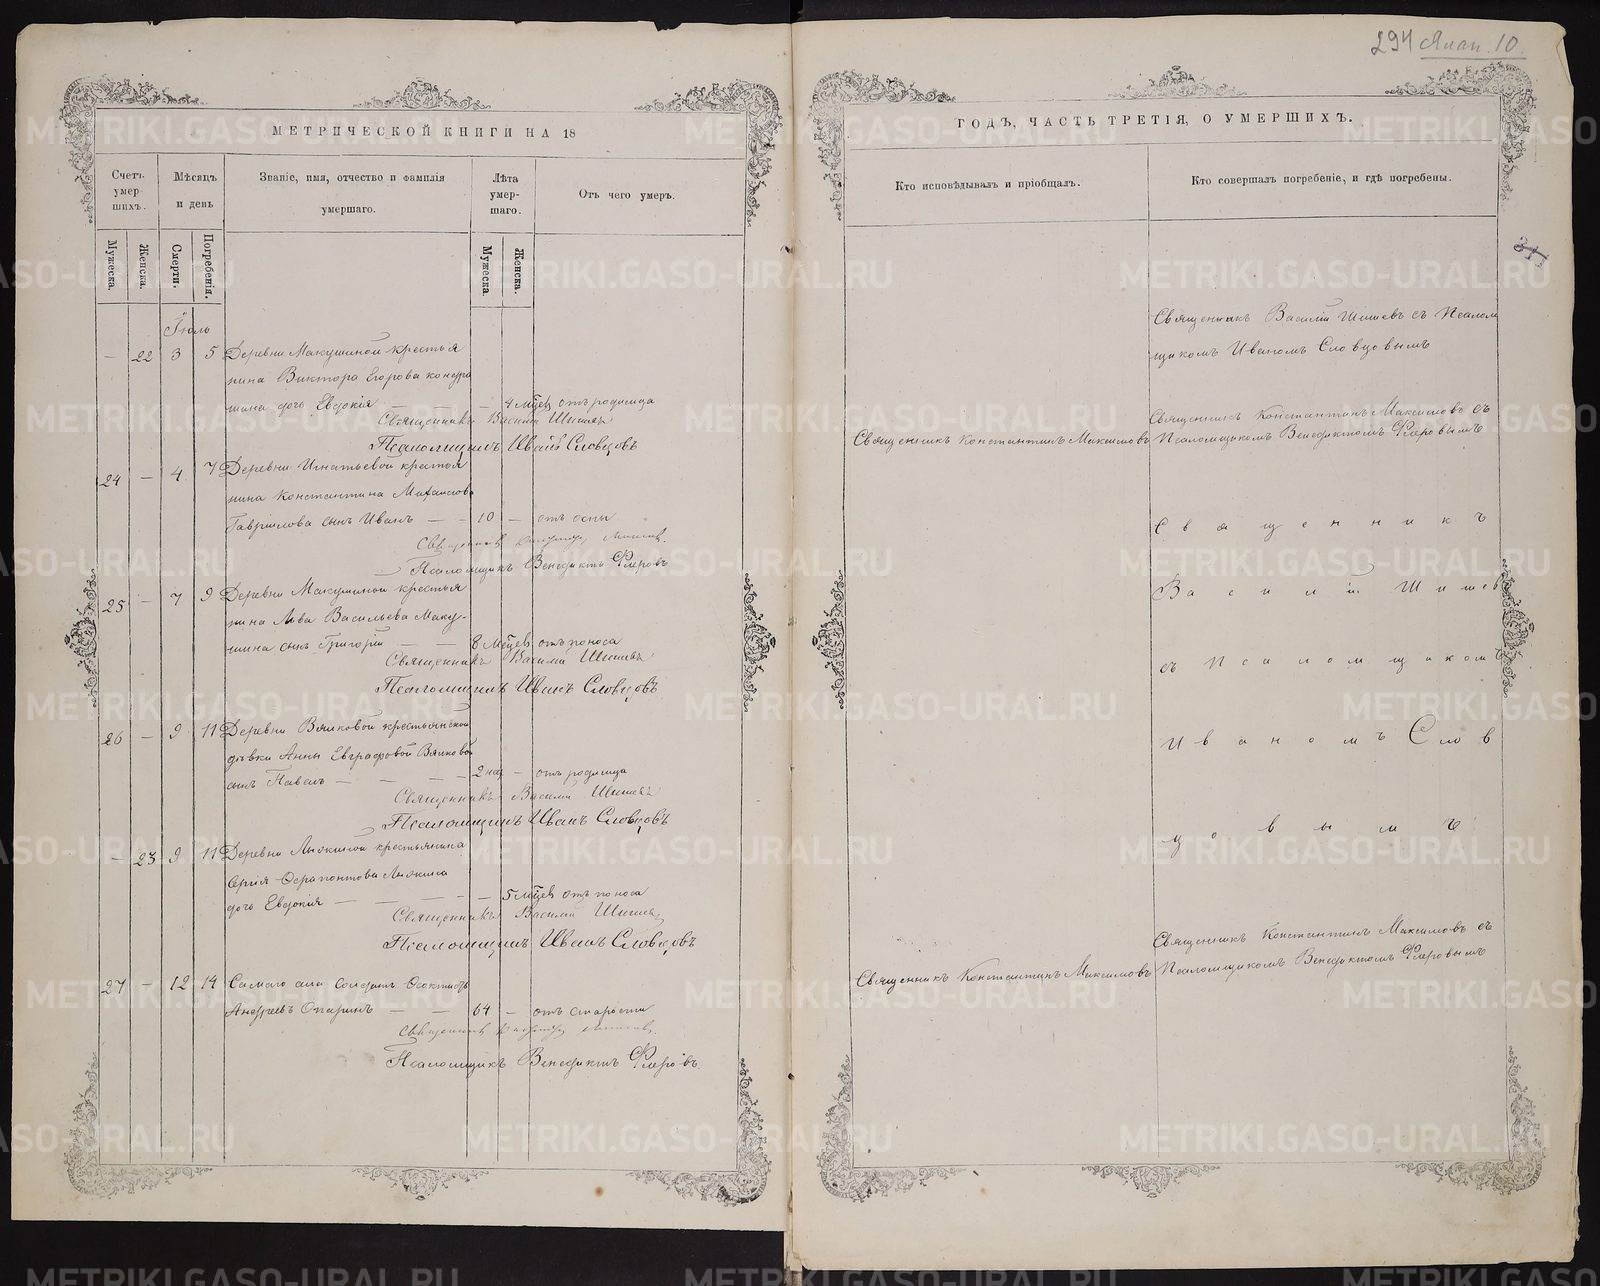 МЕТРИЧЕСКОЙ КНИГИ НА 18
Счетъ умерших.
Мѣсяцъ и день
Званіе, имя, отчество и фамилія умершаго.
Лѣта умершаго.
Отъ чего умеръ.
Мужеска.
Женска.
Смерти.
Погребенія.
Мужеска.
Женска.
Іюль
— 22 3 5 Деревни Макушиной крестья
нина Виктора Егорова
шина дочь Евдокія — — — 4 мцев отъ родимца
Священникъ Василій Шишевъ
Псаломщикъ Иванъ Словцовъ
24 — 4 7 Деревни Игнатьевой крестья
нина Константина Михаилова
Гаврилова сынъ Иванъ — — 10 — отъ оспы
Священникъ
Псаломщикъ Венедиктъ Флеровъ
25 — 7 9 Деревни Макушиной крестья
нина Льва Васильева Маку-
шина сынъ Григорій — — 8 мцев отъ поноса
Священникъ Василій Шишевъ
Псаломщикъ Иванъ Словцовъ
26 — 9 11 Деревни Вятковой крестьянской
дѣвки Анны Евграфовой Вятковой
сынъ Павелъ — — — — 2 нед — отъ родимца
Священникъ Василій Шишевъ
Псаломщикъ Иванъ Словцовъ
— 23 9 11 Деревни крестьянина
Сергія
дочь Евдокія — — — — — 5 мцев отъ поноса
Священникъ Василій Шишевъ
Псаломщикъ Иванъ Словцовъ
27 — 12 14 Самаго села Солдатъ
Андреевъ Опаринъ — — 64 — отъ старости
Священникъ
Псаломщикъ Венедиктъ Флеровъ.
294 10
ГОДЪ, ЧАСТЬ ТРЕТІЯ, О УМЕРШИХЪ.
Кто исповѣдывалъ и пріобщалъ.
Кто совершалъ погребеніе, и гдѣ погребены.
Священникъ Василій Шишевъ съ Псалом
щикомъ Иваномъ Словцовымъ
Священникъ Константинъ Максимовъ съ
Священникъ Константинъ Максимовъ Псаломщикомъ Венедиктомъ Флеровымъ
Священникъ
Василій Шишевъ
съ Псаломщикомъ
Иваномъ Слов
цовымъ
Священникъ Константинъ Максимовъ съ
Священникъ Константинъ Максимовъ Псаломщикомъ Венедиктомъ Флеровымъ
METRIKI.GASO-URAL.RU